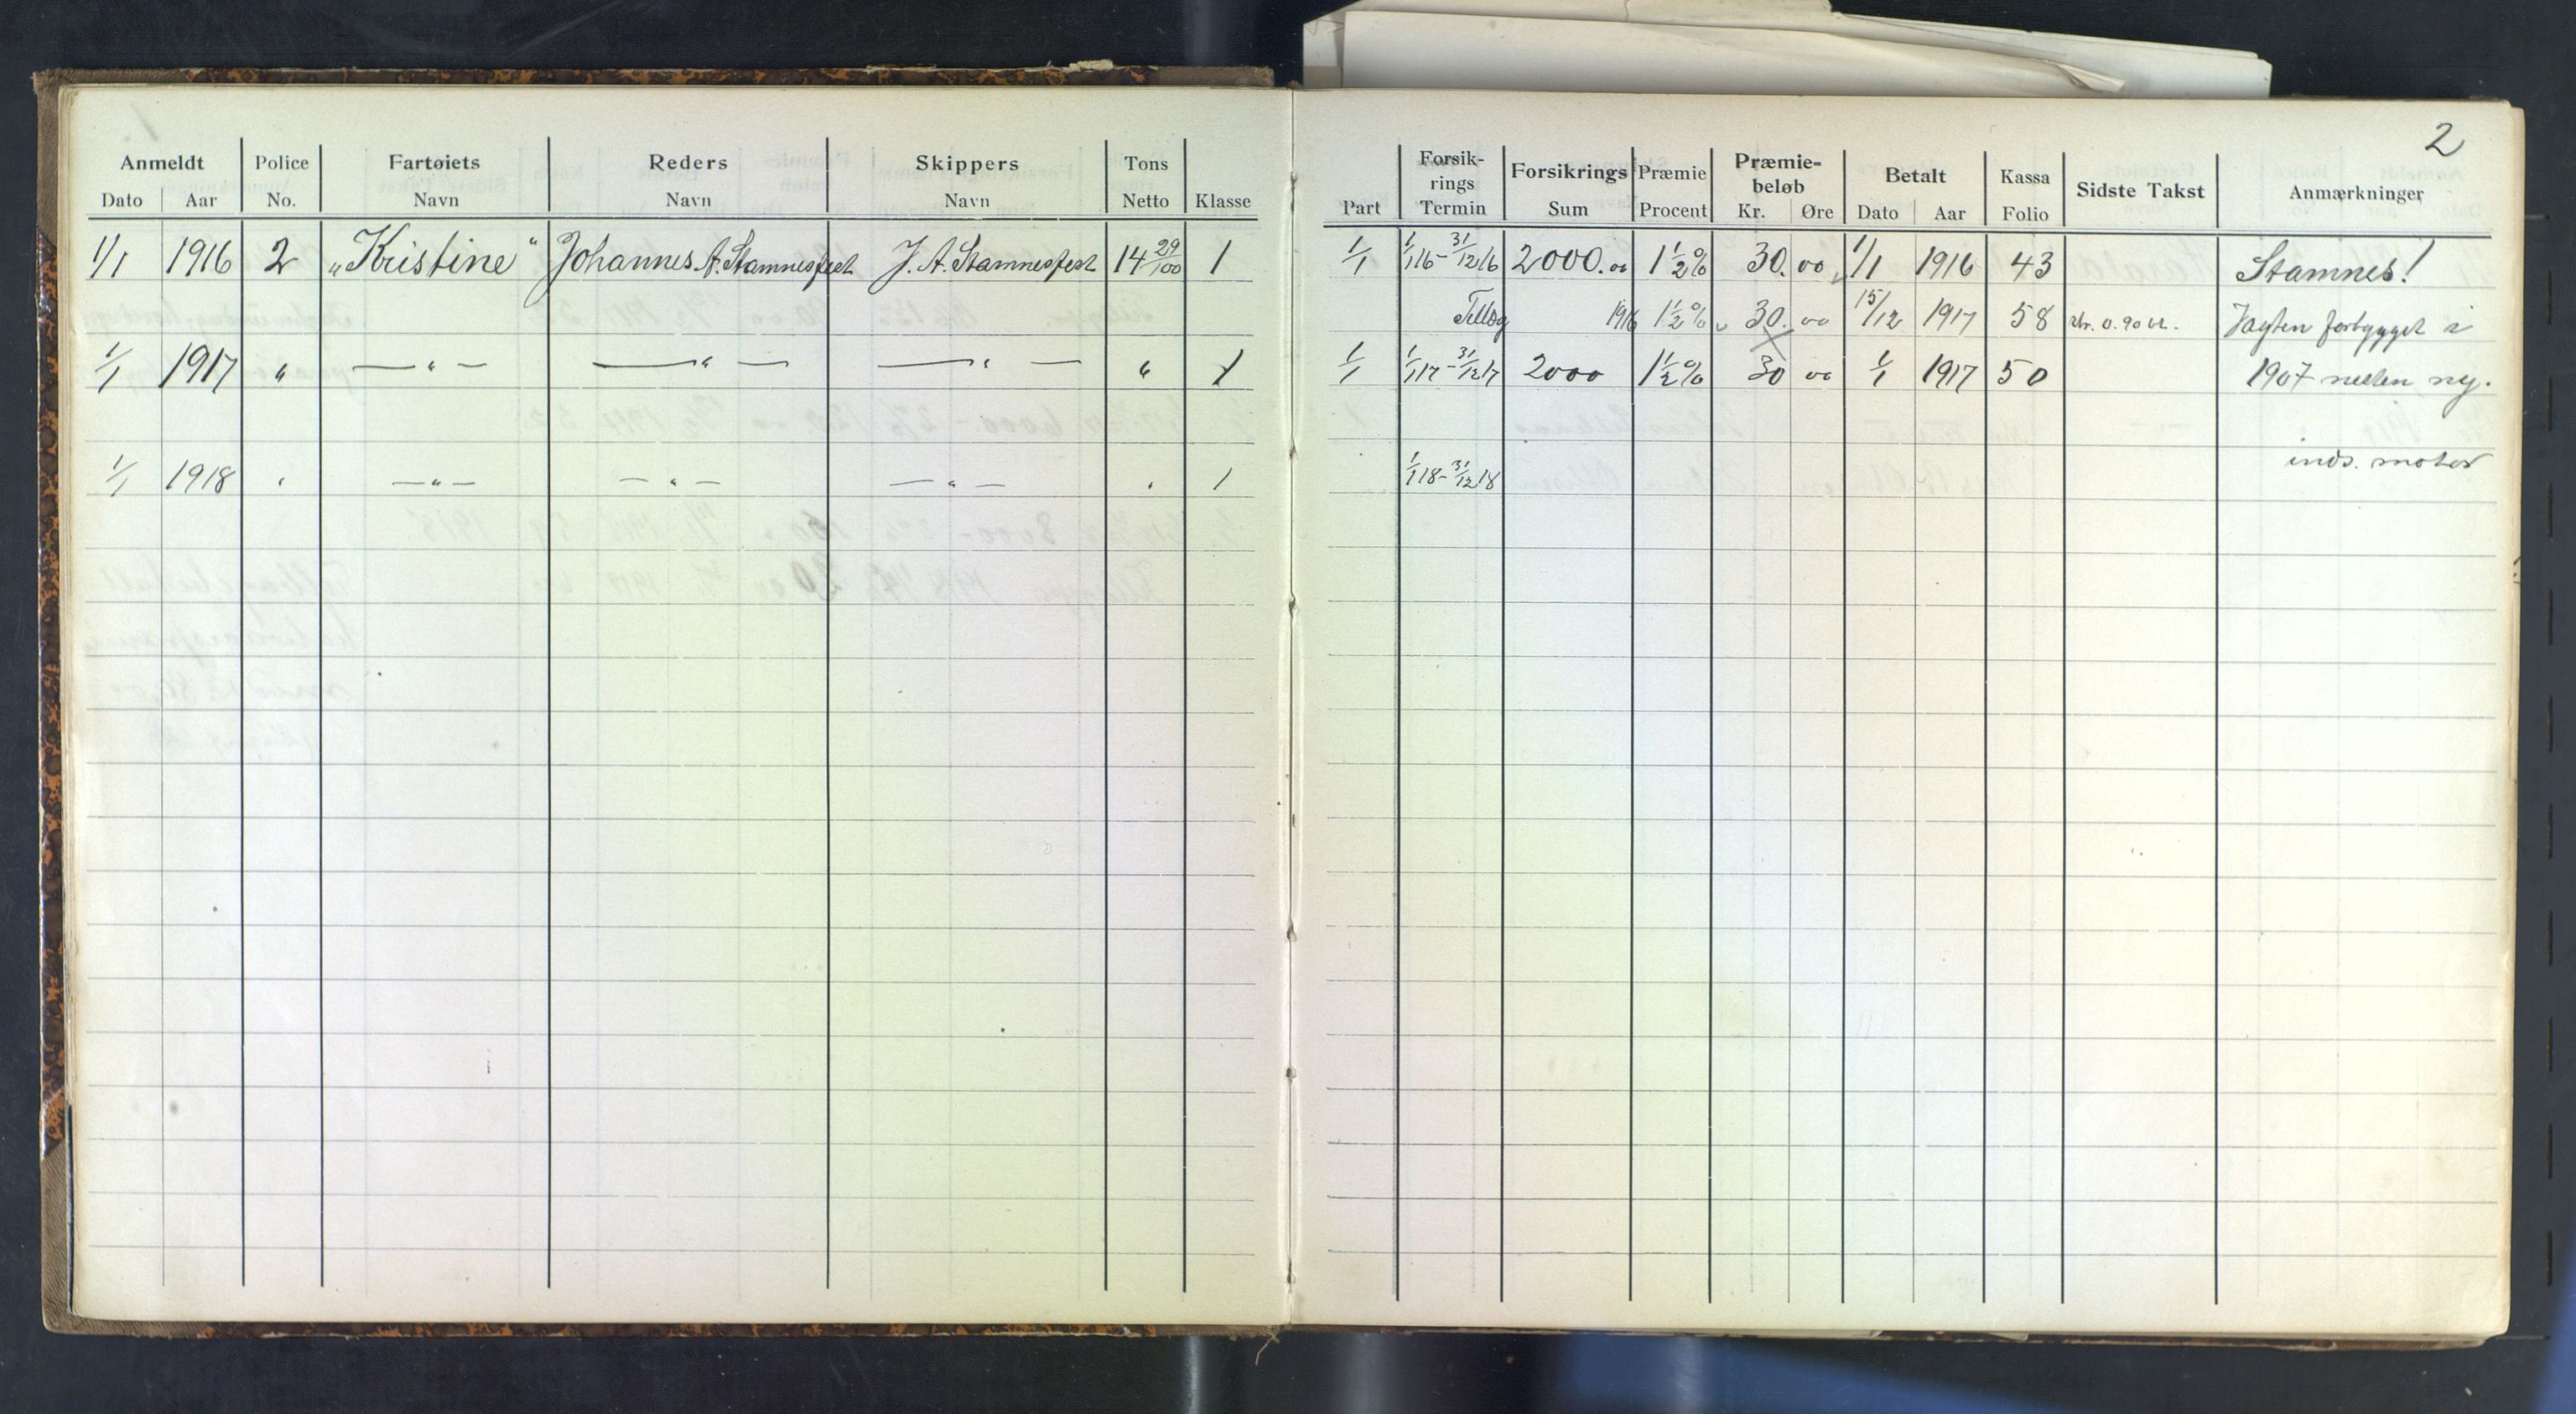 2
Anmeldt Police Fartøiets Reders Skippers Tons
Dato Aar No. Navn Navn Navn Netto Klasse
Forsik-
rings Forsikrings Præmie Præmie-
beløb Betalt Kassa Sidste Takst Anmærkninger
Part Termin Sum Procent Kr. Øre Dato Aar Folio
1/1 1916 2 „Kristine" Johannes A. Stamnesfest J. A. Stamnesfest 14 29/100 1 1/1 1/1 16 - 31/12 16 2000.00 1 1/2 % 30. 00 1/1 1916 43 Stamnes!
Tillæg 1916 1 1/2 % 30. 00 15/12 1917 58 Jagten forbygget i
1/1 1917 " — " — — " — — " — " 1 1/1 1/1 17 - 31/12 17 2000 1 1/2 % 30 00 1/1 1917 50 1907 nesten ny.
inds. motor
1/1 1918 " — " — — " — — " — " 1 1/1 18 - 31/12 18